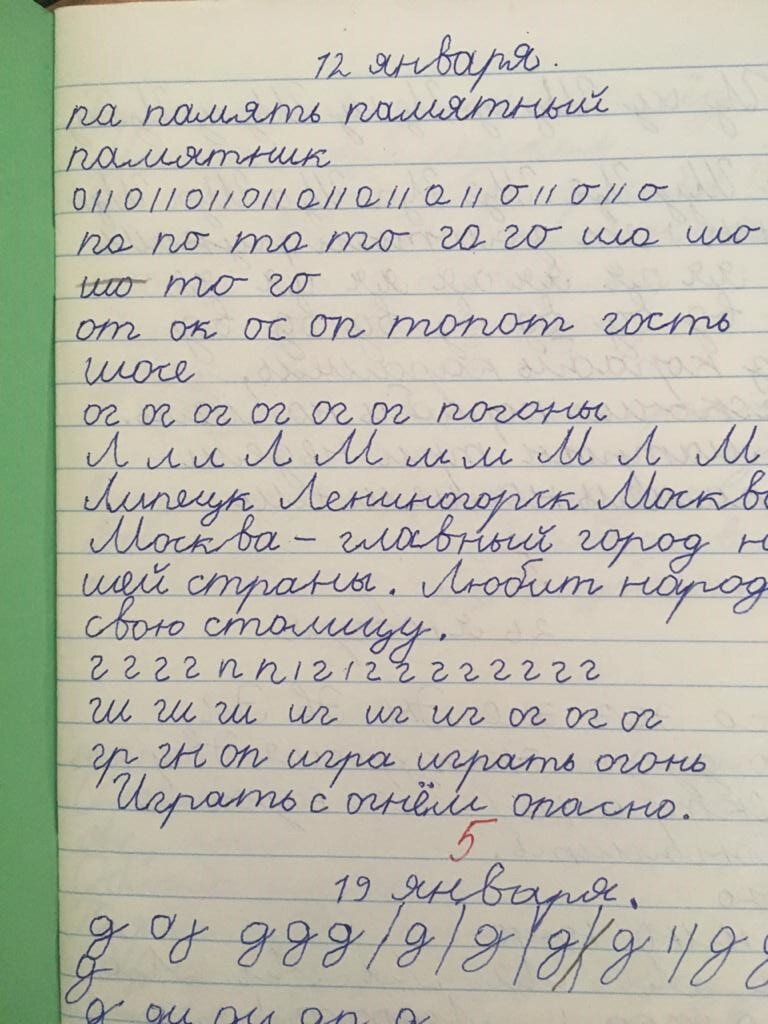 12 января.
па память памятный
памятник
0110110110110110110110110
па по та то га го ша шо
шо то го
от ок ос оп топот гость
шосе
ог ог ог ог ог ог погоны
Л л л Л М м м М Л М
Липецк Лениногорск Москва
Москва – главный город на
шей страны. Любит народ
свою столицу.
г г г г п п 1 г 1 г г г г г г г г
ги ги ги иг иг иг ог ог ог
гр гн оп игра играть огонь
Играть с огнём опасно.
5
19 января.
д д д д | д | д | д | д || д д
д